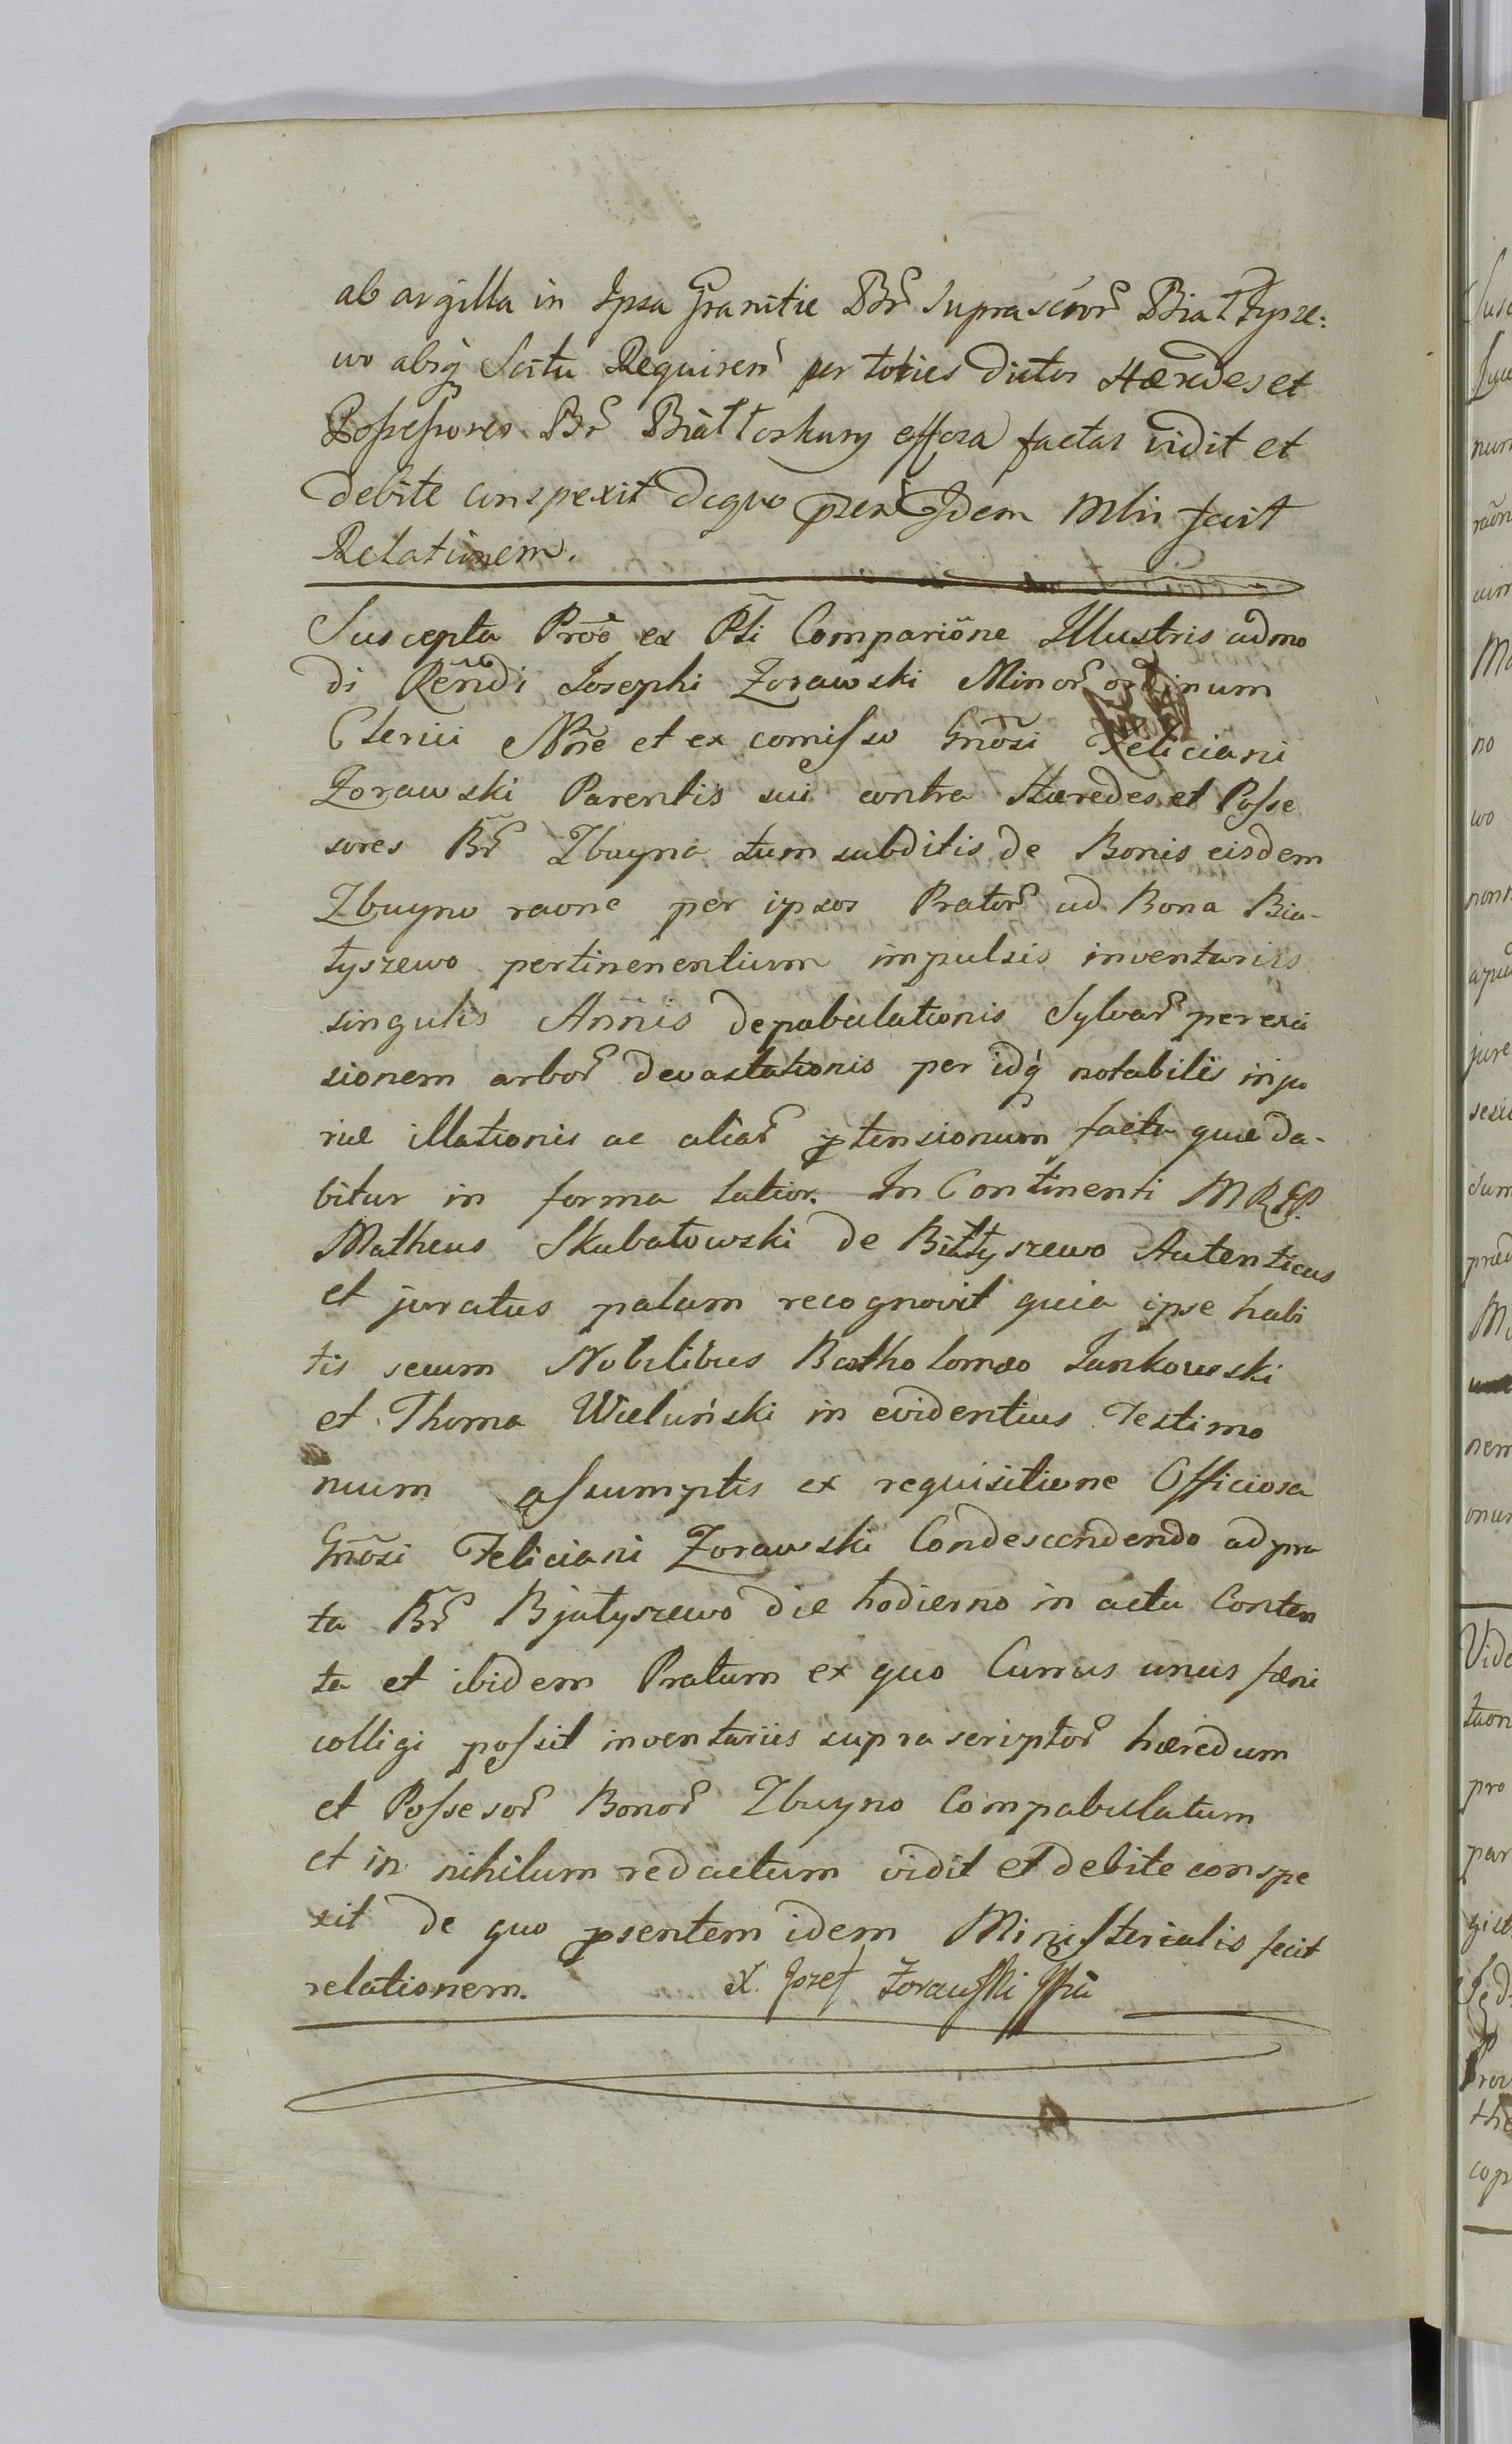 ab argilla in Ipsa Granitie Br̃ suprascr̃or̃ Białłysze:
wo absq̃ Scitu Requiren̄ per toties dictos Hæredes et
Possessores Br̃ Białłoskury effosa factas vidit et
debite conspexit dequo pñ Idem Mlis fecit
Relationem.
Suscepta Prõe ex Pti Compariõne Illustris admo
di Rẽndi Josephi Zorawski Minor̃ ordinum
Clerici Nõie et ex comisso Gnõsi Feliciani
Zorawski Parentis sui contra Hæredes et Posse
sores Br̃ Zbuyno tum subditis de Bonis eisdem
Zbuyno raone per ipsos Prator̃ ad Bona Bia-
łyszewo pertinenentium impulsis inventariis
singulis Annis depabulationis Sylvar̃ per exci
sionem arbor̃ devastationis per idq̃ notabilis inju
riæ illationis ac aliar̃ ptensionum facta quæ da-
bitur in forma latior. In Continenti MRGP.
Matheus Skubatowski de Białłyszewo Autenticus
et juratus palam recognovit quia ipse habi
tis secum Nobilibus Bartholomæo Jankowski
et Thoma Wieluński in evidentius Testimo
nium assumptis ex requisitione Officiosa
Gnõsi Feliciani Zorawski Condescendendo ad pra
ta Br̃ Bjałyszewo die hodierno in actu Conten
ta et ibidem Pratum ex quo Currus unus fæni
colligi possit inventariis supra scriptor̃ hæredum
et Possesor̃ Bonor̃ Zbuyno Compabulatum
et in nihilum redactum vidit et debite conspe
xit de quo psentem idem Ministerialis fecit
relationem. X. Jozef Zorawski